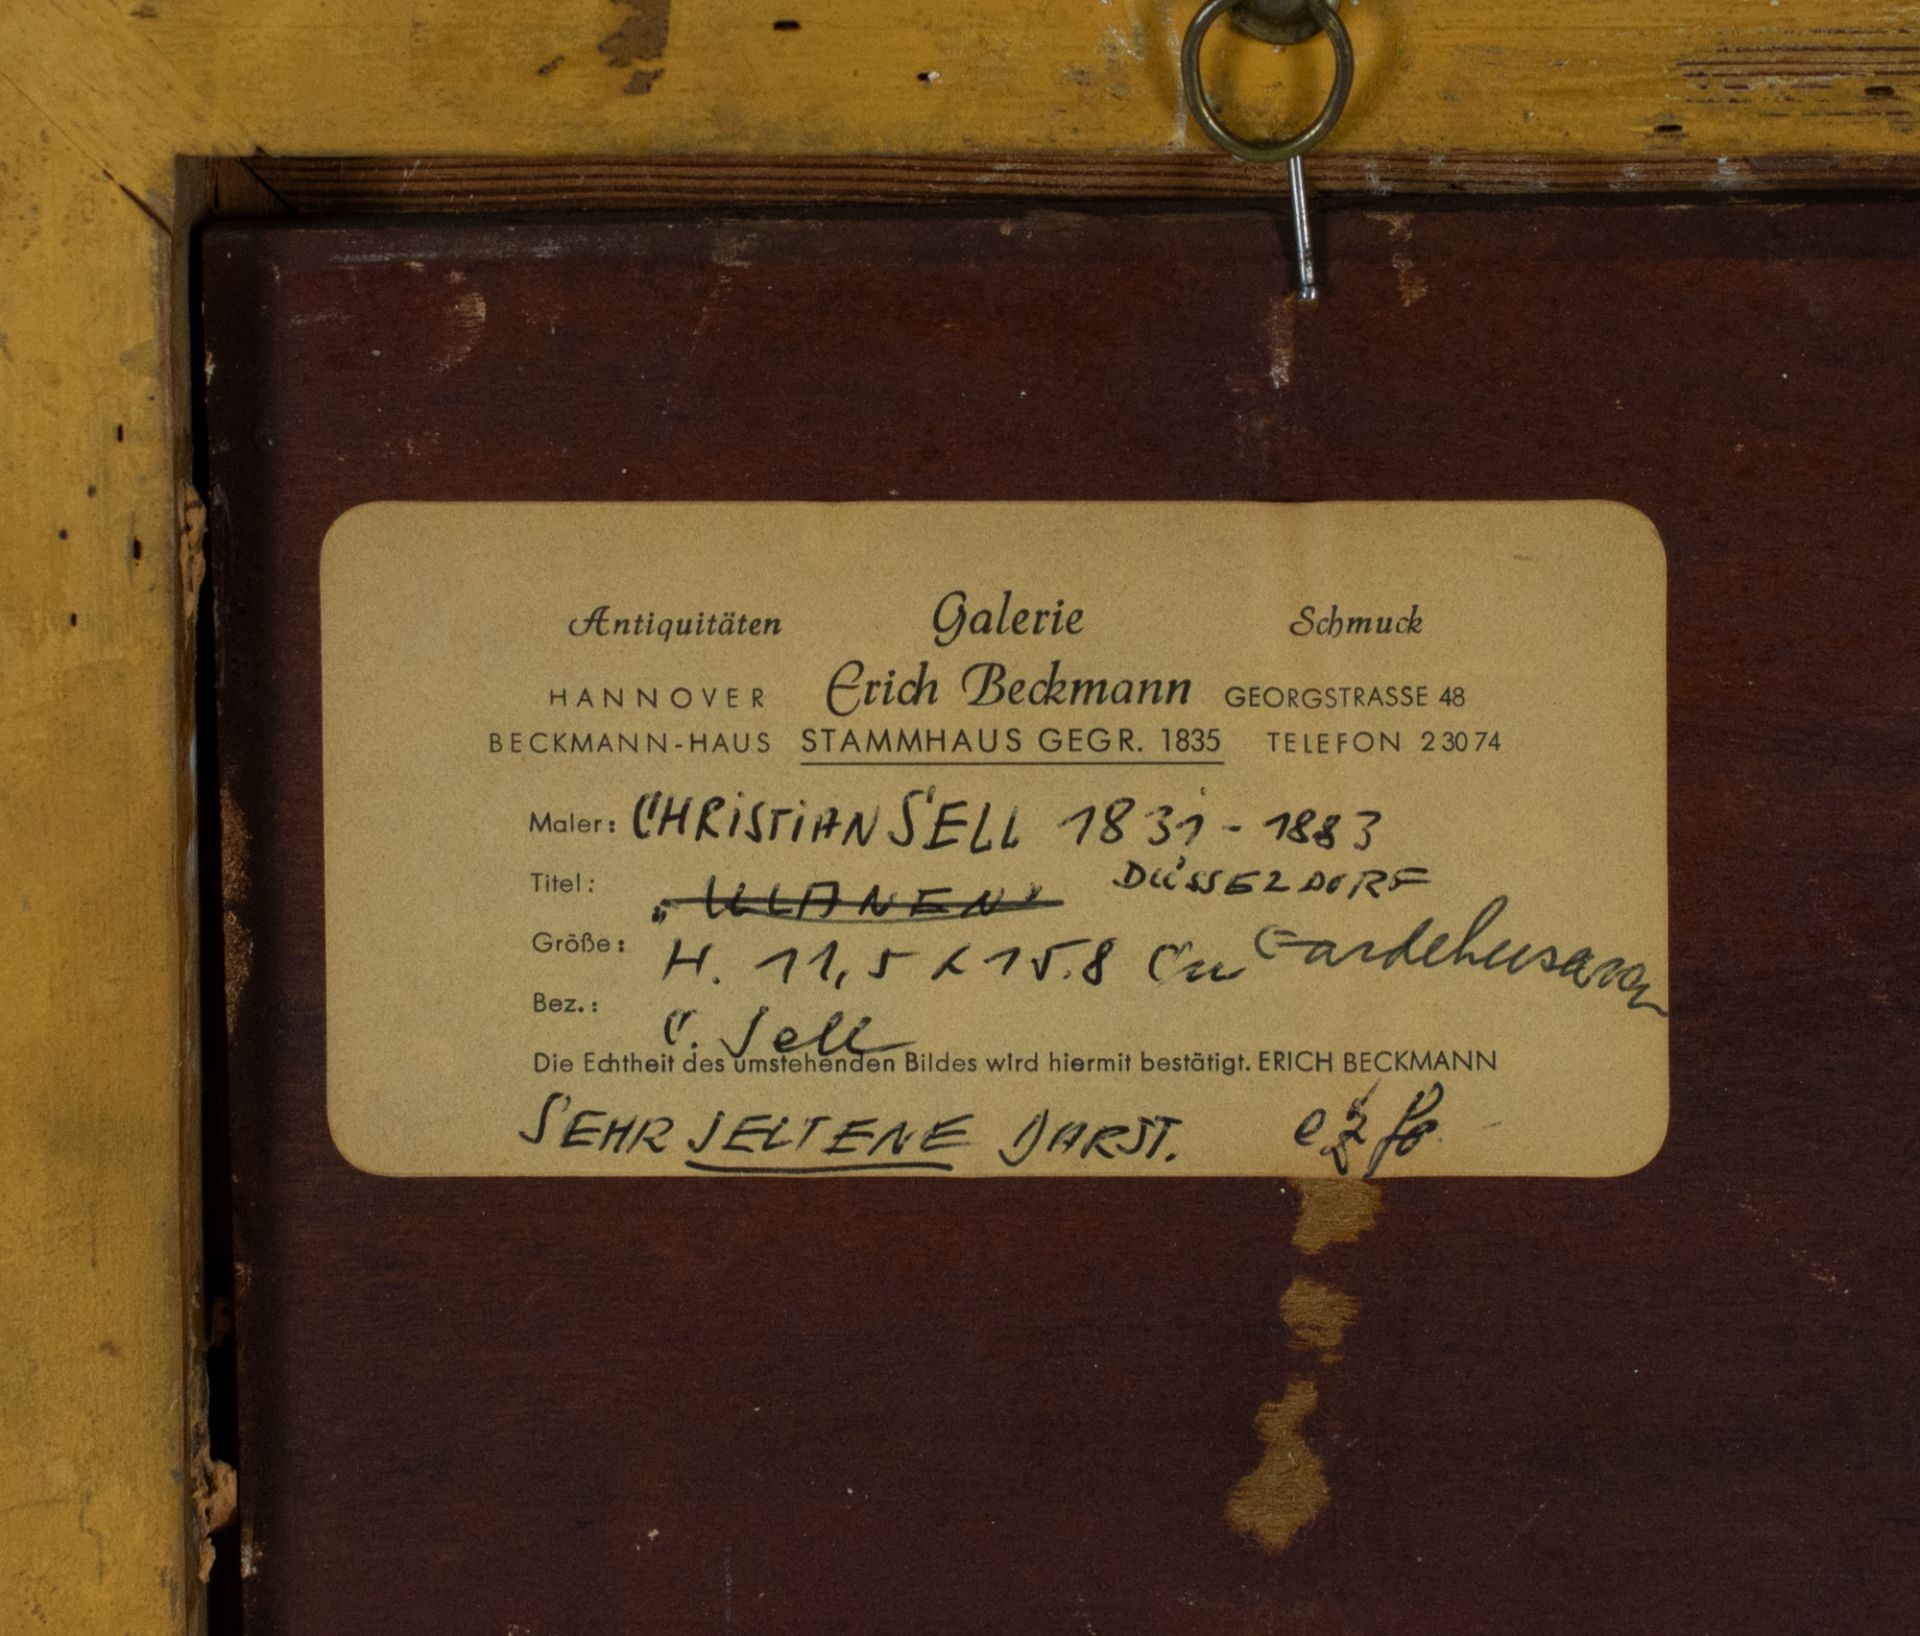 Antiquitäten Galerie Schmuck
HANNOVER Erich Beckmann GEORGSTRASSE 48
BECKMANN-HAUS STAMMHAUS GEGR. 1835 TELEFON 23074
Maler: CHRISTIAN SELL 1831 - 1883
Titel: „ULANEN" DÜSSELDORF
Größe: H. 11,5 x 15.8 Cm Gardehusaren
Bez.: C. Sell
Die Echtheit des umstehenden Bildes wird hiermit bestätigt. ERICH BECKMANN
SEHR SELTENE DARST.